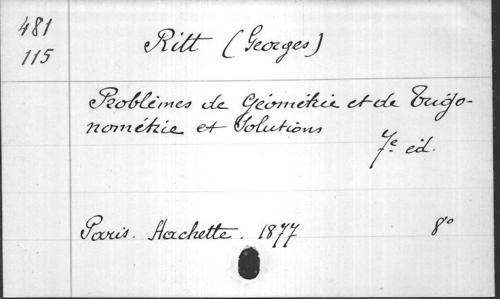 481
115
Ritt (Georges)
Problèmes de Géométrie et de Trigo-
nométrie et Solutions
7e. éd.
Paris. Hachette. 1877 8°